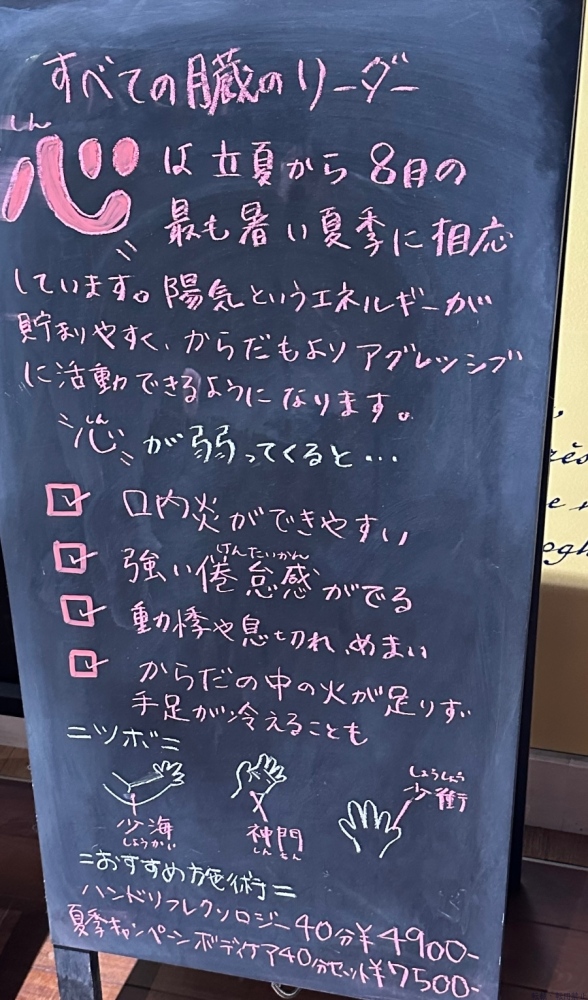 すべての臓のリーダー
しん
心は立夏から8月の
最も暑い夏季に相応
しています。陽気というエネルギーが
貯まりやすく、からだもよりアグレッシブ
に活動できるようになります。
しん
"心"が弱ってくると…
口内炎ができやすい
けんたいかん
強い倦怠感がでる
動悸や息切れ、めまい
からだの中の火が足りず
手足が冷えることも
=ツボ=
少海
しょうかい
神門
しんもん
しょうしょう
少衝
=おすすめ施術=
ハンドリフレクソロジー40分¥4900-
夏季キャンペーンボディケア40分セット¥7500-